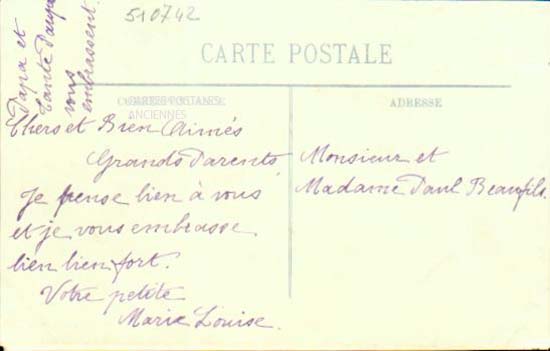 510742
CARTE POSTALE
ADRESSE
ANCIENNES
Papa et
tante
vous
embrassent.
Chers et Bien Aimés
Grands Parents,
Je pense bien à vous
et je vous embrasse
bien bien fort.
Votre petite
Marie Louise.
Monsieur et
Madame Paul Beaufils.